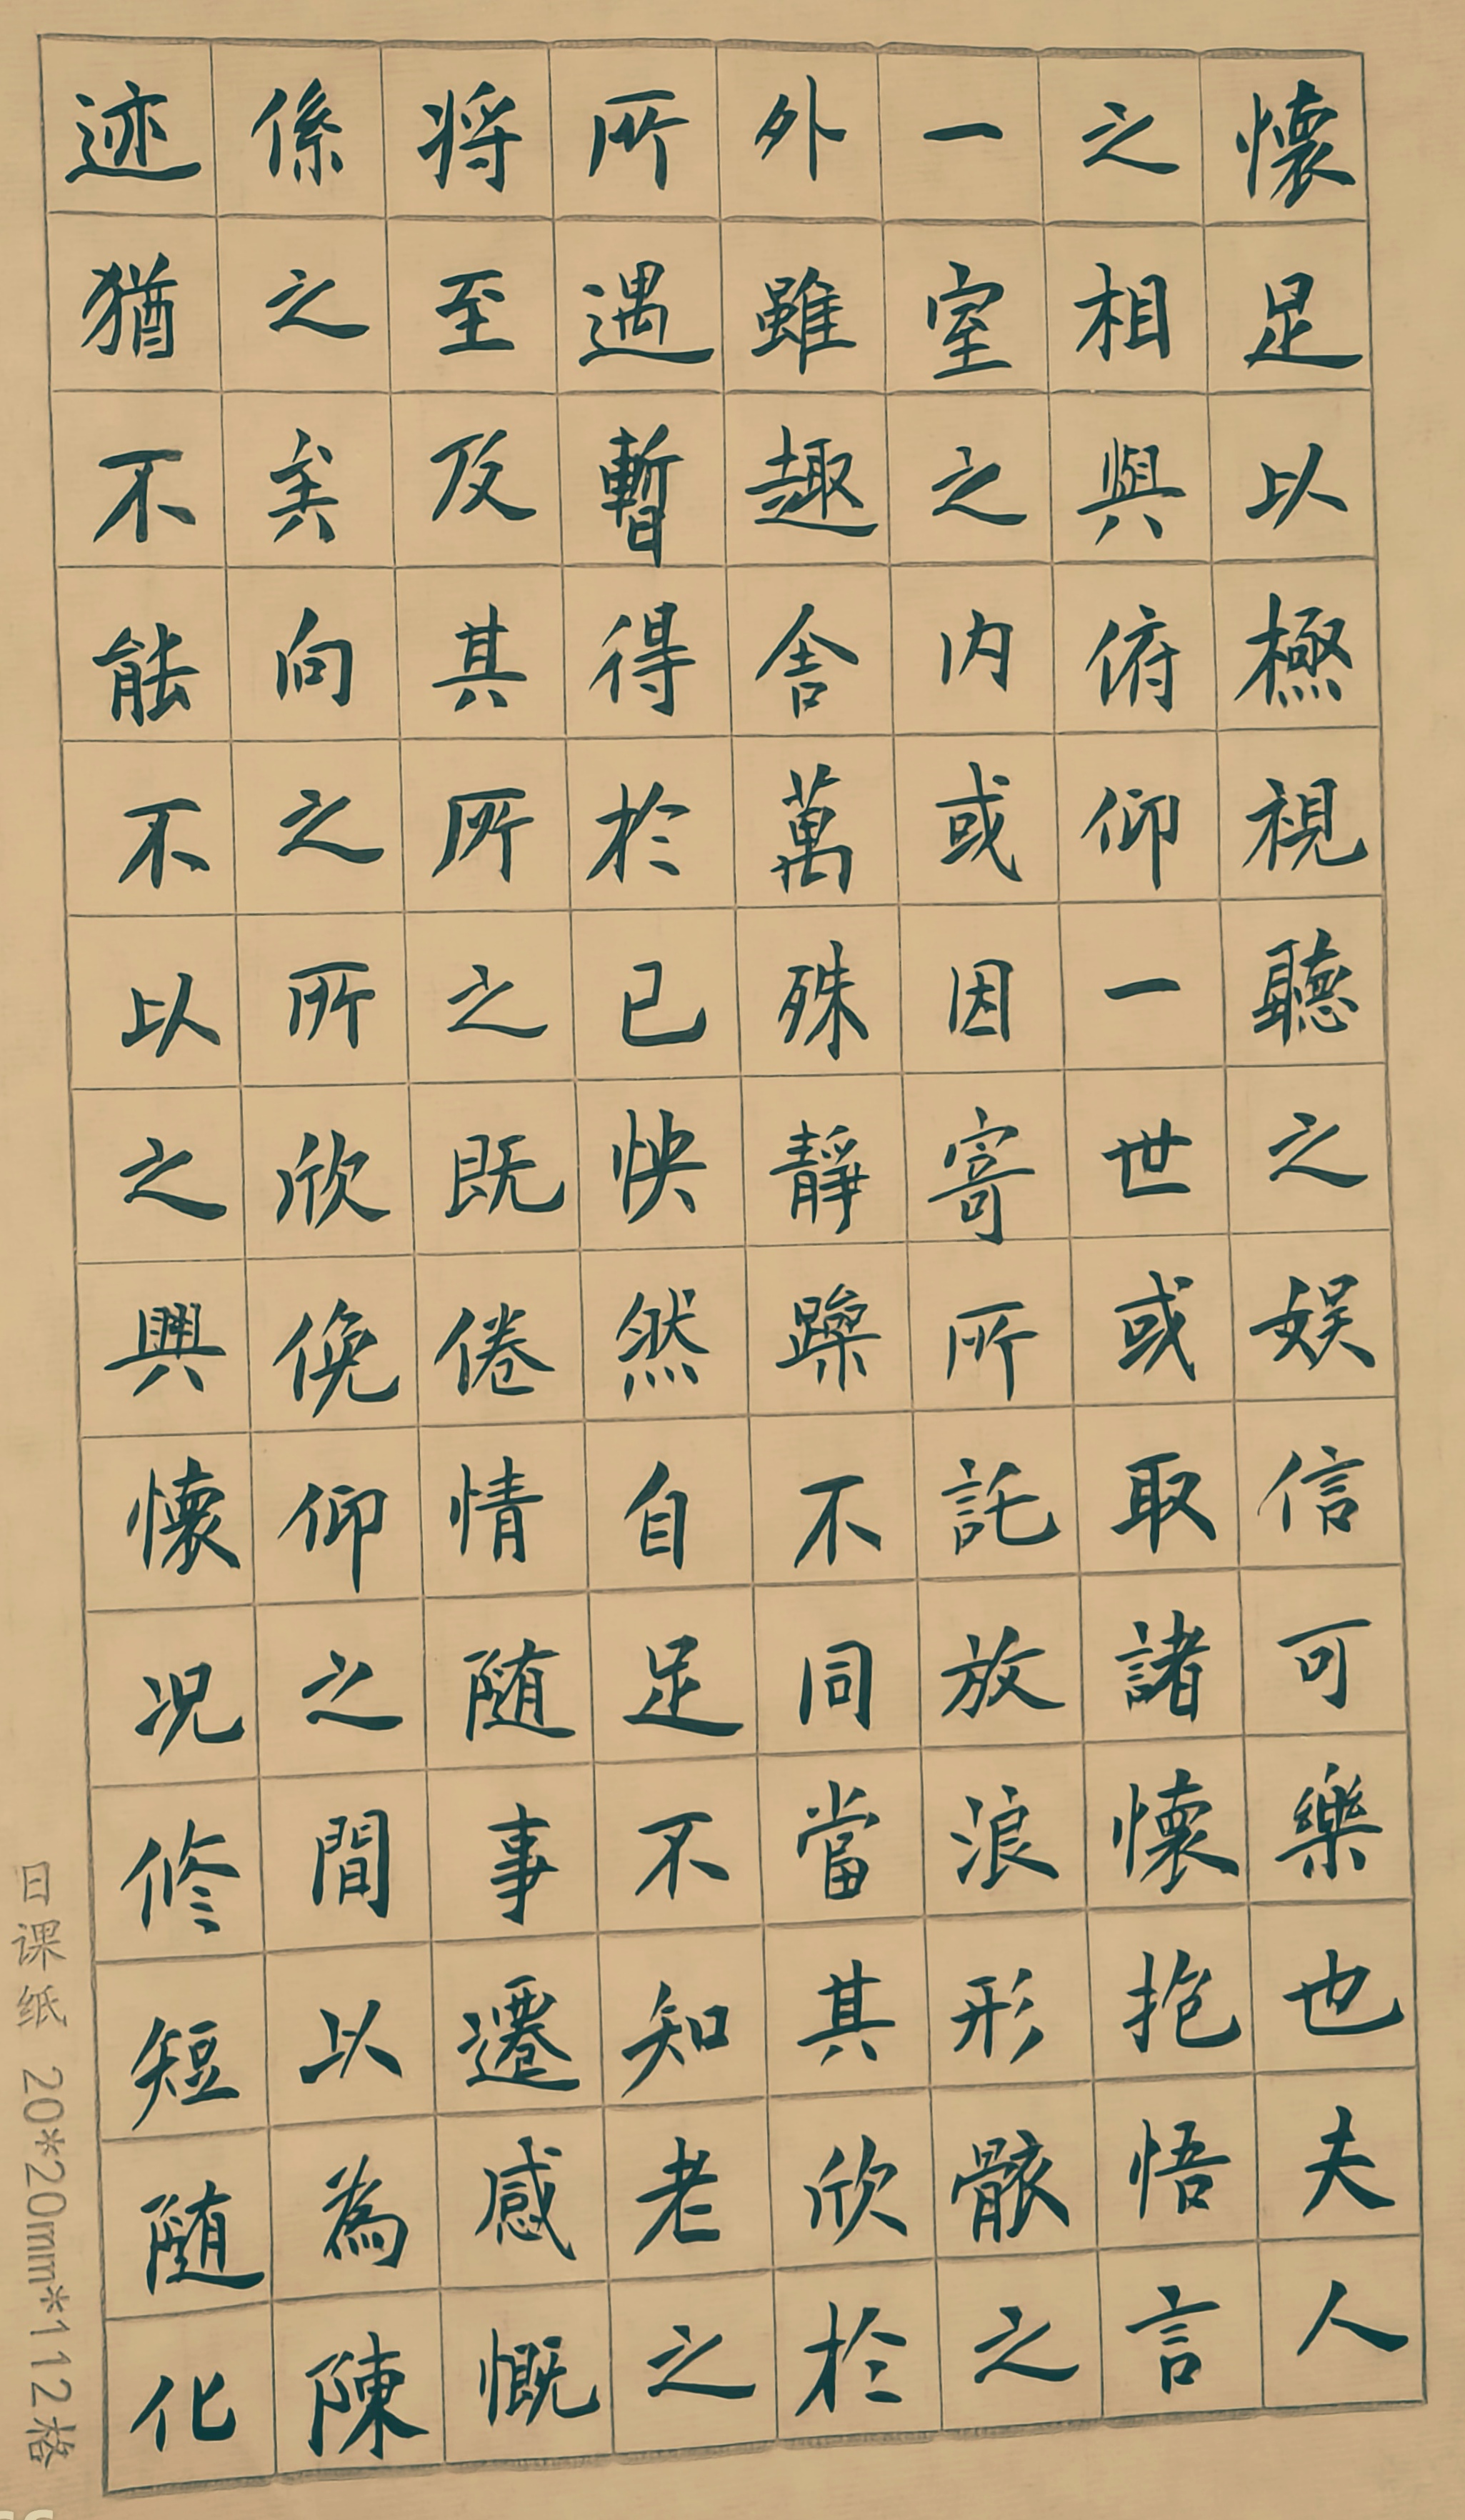 懷足以極視聽之娛信可樂也夫人
之相與俯仰一世或取諸懷抱悟言
一室之内或因寄所託放浪形骸之
外雖趣舍萬殊靜躁不同當其欣於
所遇暫得於己怏然自足不知老之
将至及其所之既倦情随事遷感慨
係之矣向之所欣俛仰之間以為陳
迹猶不能不以之興懷况修短随化
日课纸 20*20mm*112格